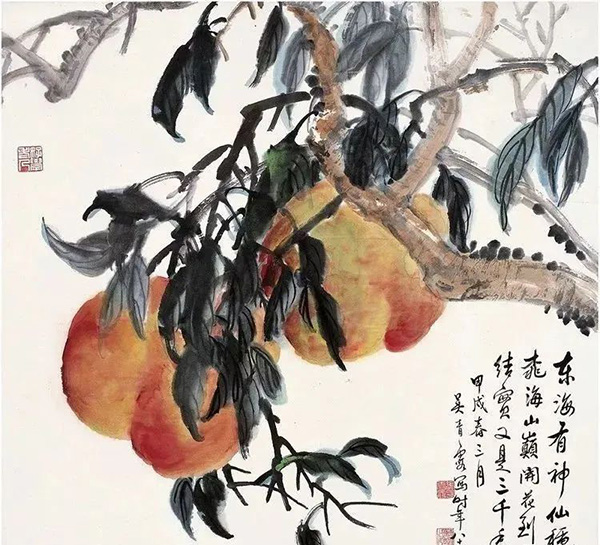 东海有神仙種
飛海山巔開花到
结實又是三千年
甲戌春三月
吴青霞写时年八